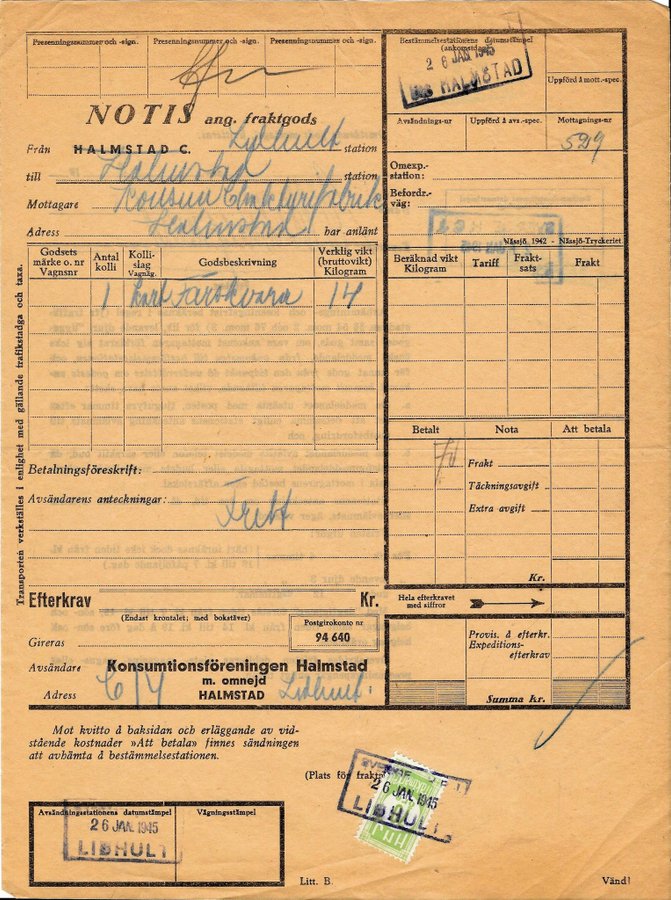 Presenningsnummer och -sign. Presenningsnummer och -sign. Presenningsnummer och -sign.
NOTIS ang. fraktgods
Från HALMSTAD C. Lidhult station
till Halmstad station
Mottagare Konsum
Adress Halmstad har anlänt
Bestämmelsestationens datumstämpel
(ankomstdag)
26 JAN. 1945
HALMSTAD
Uppförd å mott.-spec.
Avsändnings-nr Uppförd å avs.-spec. Mottagnings-nr
Omexp.-
station:
Befordr.-
väg:
Nässjö 1942 - Nässjö-Tryckeriet
Godsets
märke o. nr
Vagnsnr
Antal
kolli
Kolli-
slag
Vagnkg.
Godsbeskrivning
Verklig vikt
(bruttovikt)
Kilogram
Beräknad vikt
Kilogram
Tariff
Frakt-
sats
Frakt
1 kart Färskvara 14
Transporten verkställes i enlighet med gällande trafikstadga och taxa.
Betalt Nota Att betala
70
Frakt
Täckningsavgift
Extra avgift
Kr.
Betalningsföreskrift:
Avsändarens anteckningar:
Fritt
Efterkrav Kr.
(Endast krontalet; med bokstäver)
Hela efterkravet
med siffror
Gireras
Postgirokonto nr
94 640
Provis. å efterkr.
Expeditions-
efterkrav
Summa Kr.
Avsändare Konsumtionsföreningen Halmstad
m. omnejd
Adress HALMSTAD Lidhult
Mot kvitto å baksidan och erläggande av vid-
stående kostnader »Att betala» finnes sändningen
att avhämta å bestämmelsestationen.
(Plats för
26 JAN. 1945
LIDHULT
Avsändningsstationens datumstämpel Vägningsstämpel
26 JAN. 1945
LIDHULT
Litt. B. Vänd!